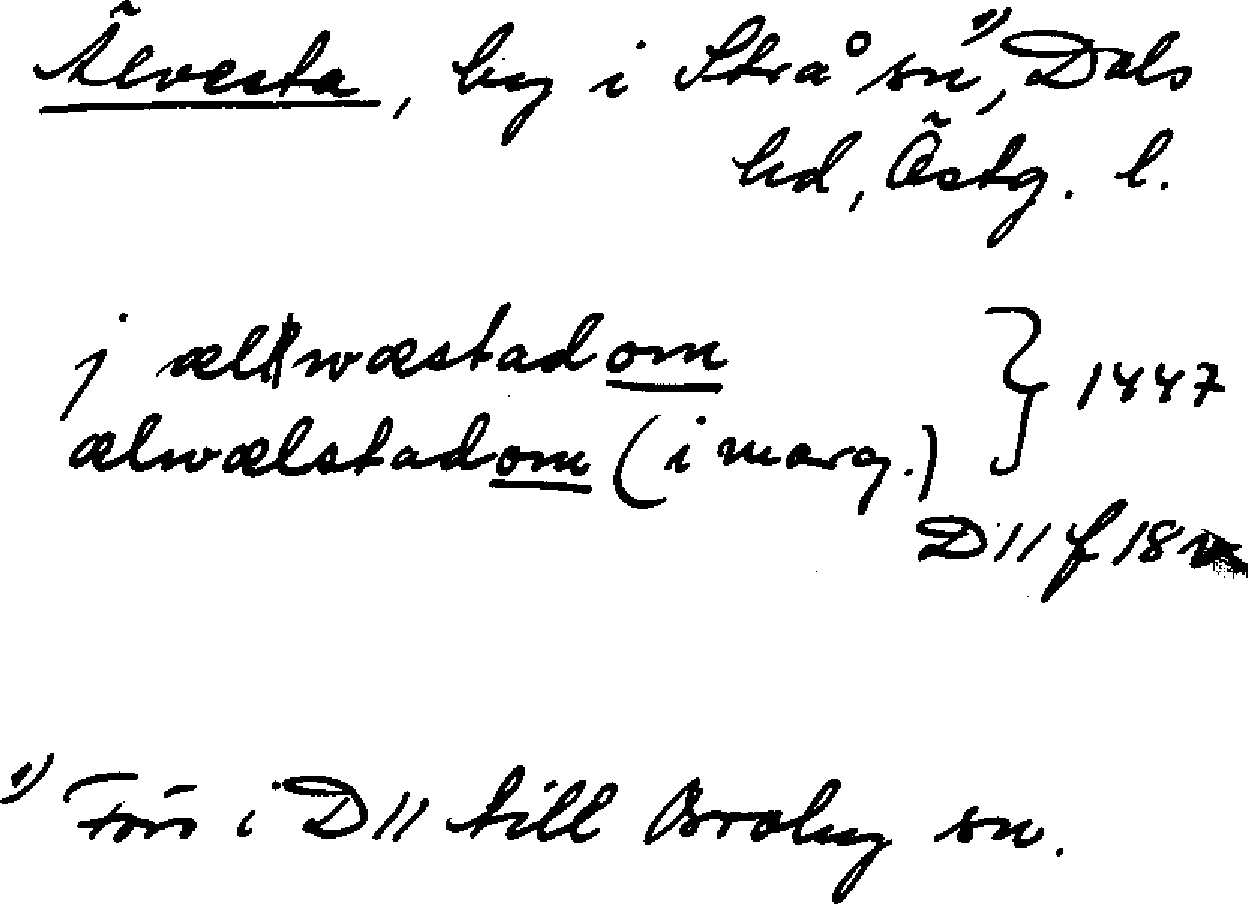 Älvesta, by i Strå sn¹⁾, Dals
hd, Östg. l.
j ælwæstadom } 1447
ælwælstadom (i marg.)
D11 f 18v
¹⁾ Förs i D11 till Broby sn.